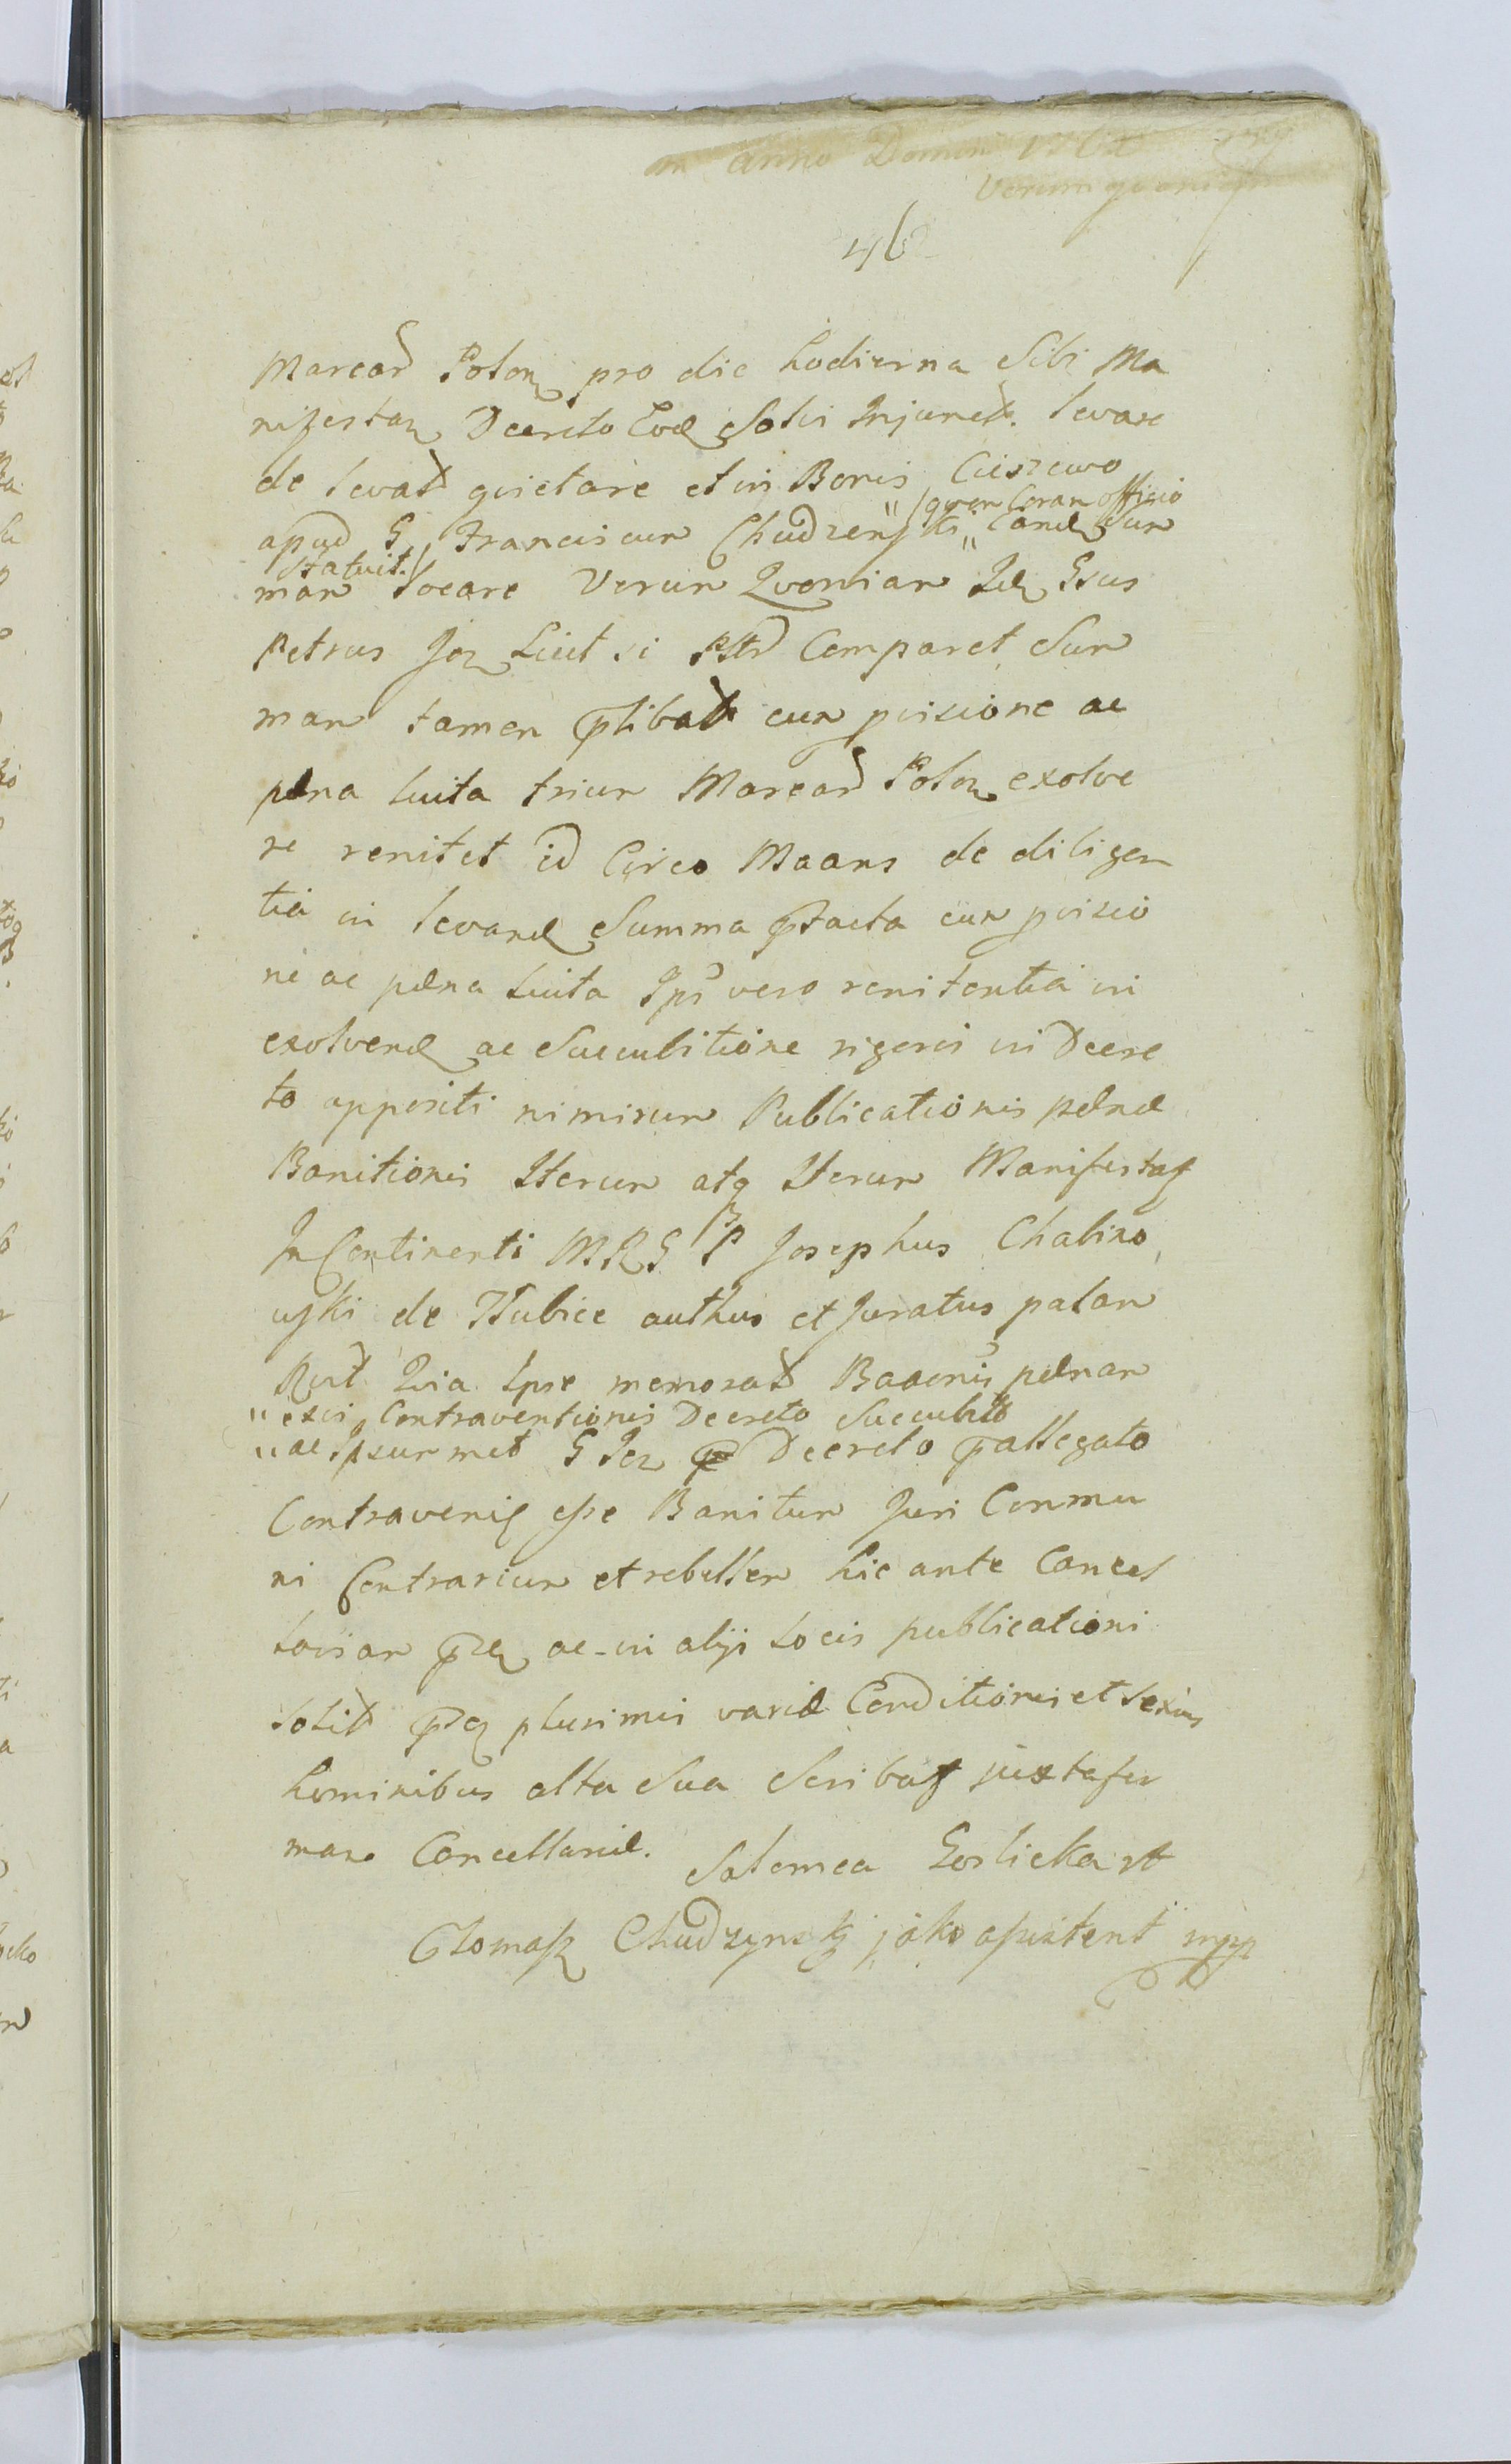 in anno Domini
Verum quoniam
46
Marcar Polon pro die hodierna Sibi Ma
nifestan Decreto Eod Solvi Injunct. levare
de levat quietare et in Bonis Ciszewo
/quem Coram officio
apud G Franciscum Chudzenski eand Sum
statuit./
mam locare Verum Quoniam Id Gsus
Petrus Licet si Comparet Sum
mam tamen plibat cum pvisione ac
pæna luita trium Marcar Polon exolve
re renitet id Circo Maans de diligen
tia in levand Summa ptacta cum pvisio
ne ac pæna luita Ips vero renitentia in
exolvend ac Succubitione rigoris in Decre
to appositi nimirum Publicationis pænæ
Banitionis Iterum atq Iterum Manifestat
In Continenti MRG P Josephus
uski de authus et Juratus palam
Rvit Quia Ipse memorat Baaonis pænam
"exvi Contraventionis Decreto Succubit
"ac Ipsummet G Decreto pallegato
Contraveniens esse Banitum Juri Commu
ni Contrarium et rebellem hic ante Cancel
lariam ac in alijs Locis publicationi
solit plurimis variæ Conditionis et Sexus
hominibus alta Sua juxta for
mam Cancellariæ. Salomea Gorlicka
Tomasz Chudzynski jako asistent mpp